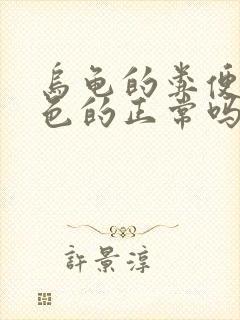 乌龟的粪便
色的正常吗
許景淳